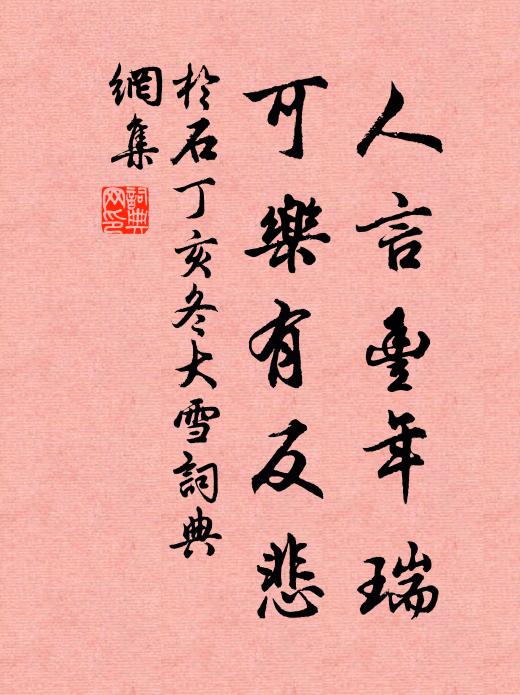 人言豐年瑞
可樂有反悲
於石丁亥冬大雪詞典
網集
詞典網印